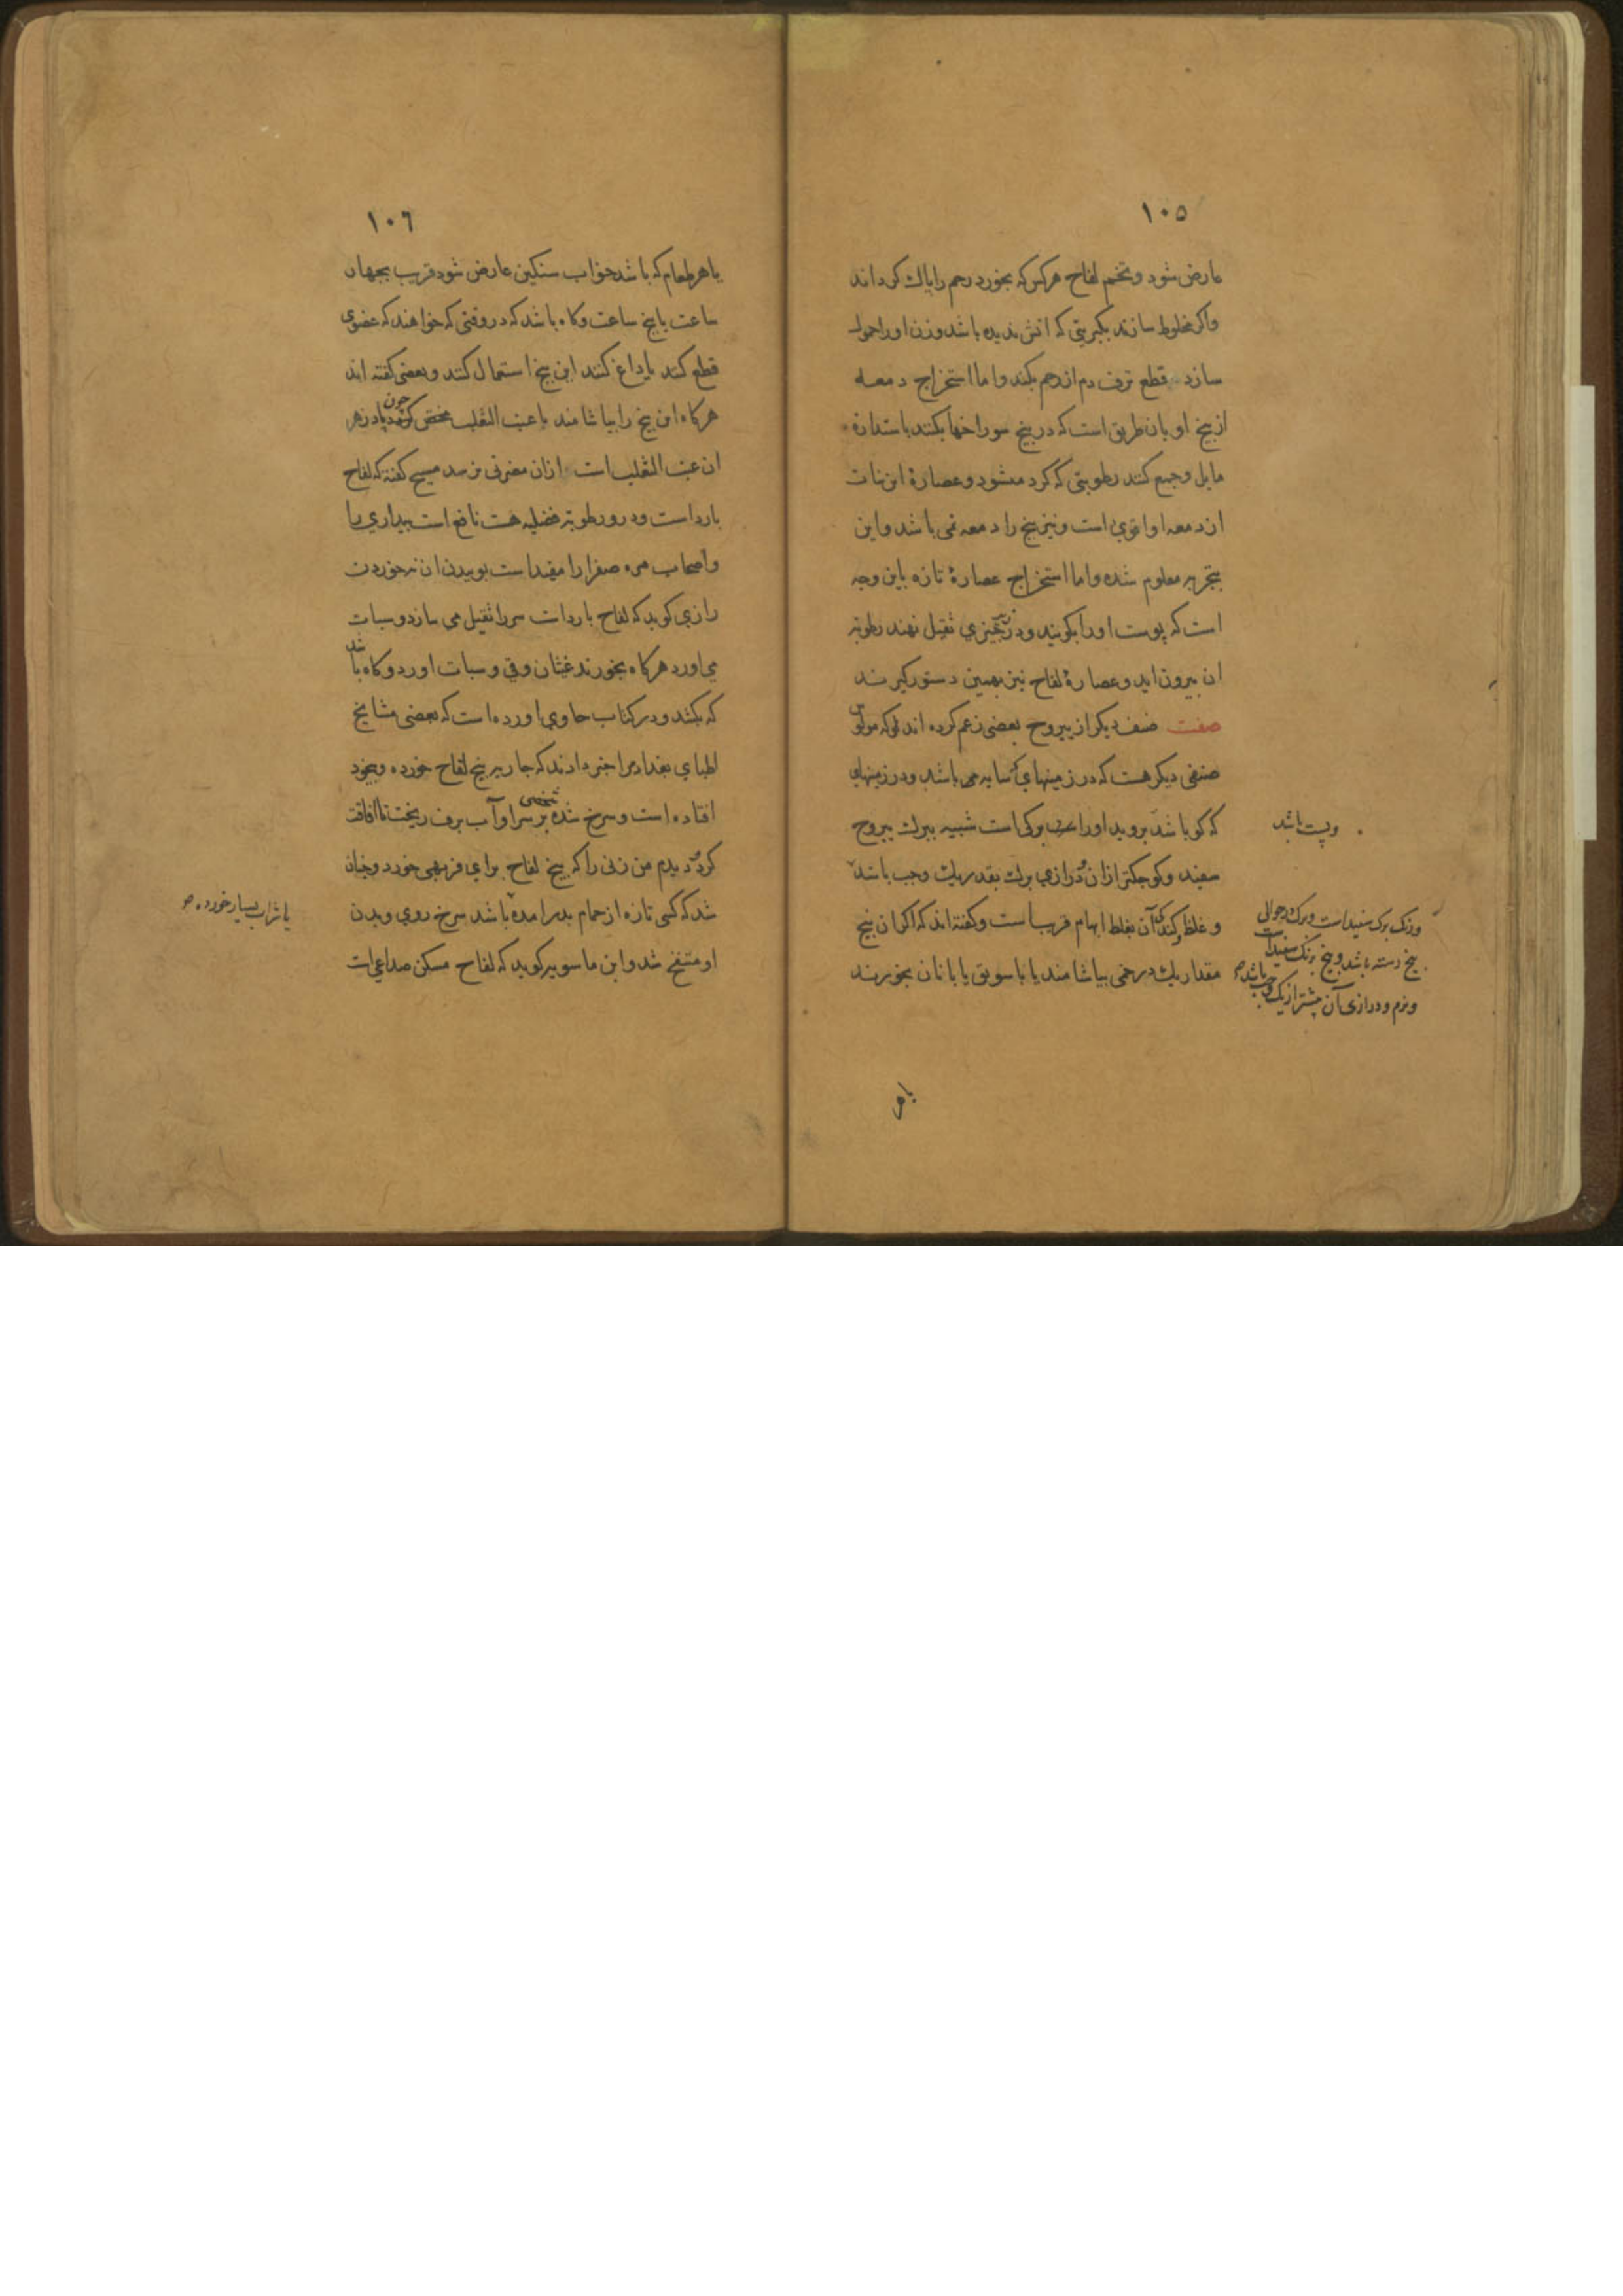 ١٠٥
عارض شود و تخم لفاح هرکس که بخورد رحم را پاك کرداند
واکر مخلوط سازند بکبریتی که اتش ندیده باشد وزن اورا حمول
سازد قطع نزف دم از رحم بکند و اما استخراج دمعه
از بیخ او بان طریق است که در بیخ سوراخها بکنند باستداره
مایل و جمع کنند رطوبتی که کرد میشود و عصارهٔ این نبات
از دمعه او اقوی است و نیز بیخ را دمعه نمی باشد و این
بتجربه معلوم شده و اما استخراج عصارهٔ تازه باین وجه
است که پوست اورا بکوبند و در زیر چیزی ثقیل نهند رطوبة
ان بیرون اید و عصارهٔ لفاح نیز بهمین دستور کیرند
صفت صنف دیکر از یبروح بعضی زعم کرده اند که
صنفی دیکر هست که در زمینهای سایه می باشد و در زمینهای
که کو باشد بروید اورا برکی است شبیه ببرك یبروح
سفید و کوجکتر از ان درازی برك بقدر یك وجب باشد
و غلظ آن بغلط ابهام قریب است و کفته اند که اکر ان بیخ
مقدار یك درخمی بیاشامند یا با سویق یا با نان بخورند
و پست باشد
ورنک برک سفید است و برک در حوالی
بیخ دسته باشد و بیخ برنک سفید است
ونرم و درازی آن بیشتر از یک وجب باشد
یا هر
١٠٦
یا هر طعام که باشد خواب سنکین عارض شود قریب بجهار
ساعت یا پنج ساعت و کاه باشد که در وقتی که خواهند که عضوی
قطع کنند یا داغ کنند این بیخ استعمال کنند و بعضی کفته اند
هرکاه این بیخ را بیاشامند با عنب الثعلب پادزهر
ان عنب الثعلب است از ان مضرتی نرسد مسیح کفته که لفاح
بارد است و درو رطوبة فضلیه هست نافع است بیداري را
واصحاب مره صفرا را مفید است بوییدن ان نه خوردن
رازي کوید که لفاح بارد است سر را ثقیل می سازد و سبات
می اورد هرکاه بخورند غثیان و قی و سبات اورد و کاه باشد
که بکشد و در کتاب حاوي اورده است که بعضی مشایخ
اطبای بغداد مرا خبر دادند که جاریه بیخ لفاح خورده و بیخود
افتاده است و سرخ شده شخصی بر سر او آب برف ریخت تا افاقت
کرد و دیدم من زنی را که بیخ لفاح برای فربهی خورد و چنان
شد که کسی تازه از حمام بدر امده باشد سرخ روي و بدن
او منتفخ شد و ابن ماسویه کوید که لفاح مسکن صداعی است
یا شراب بسیار خورده